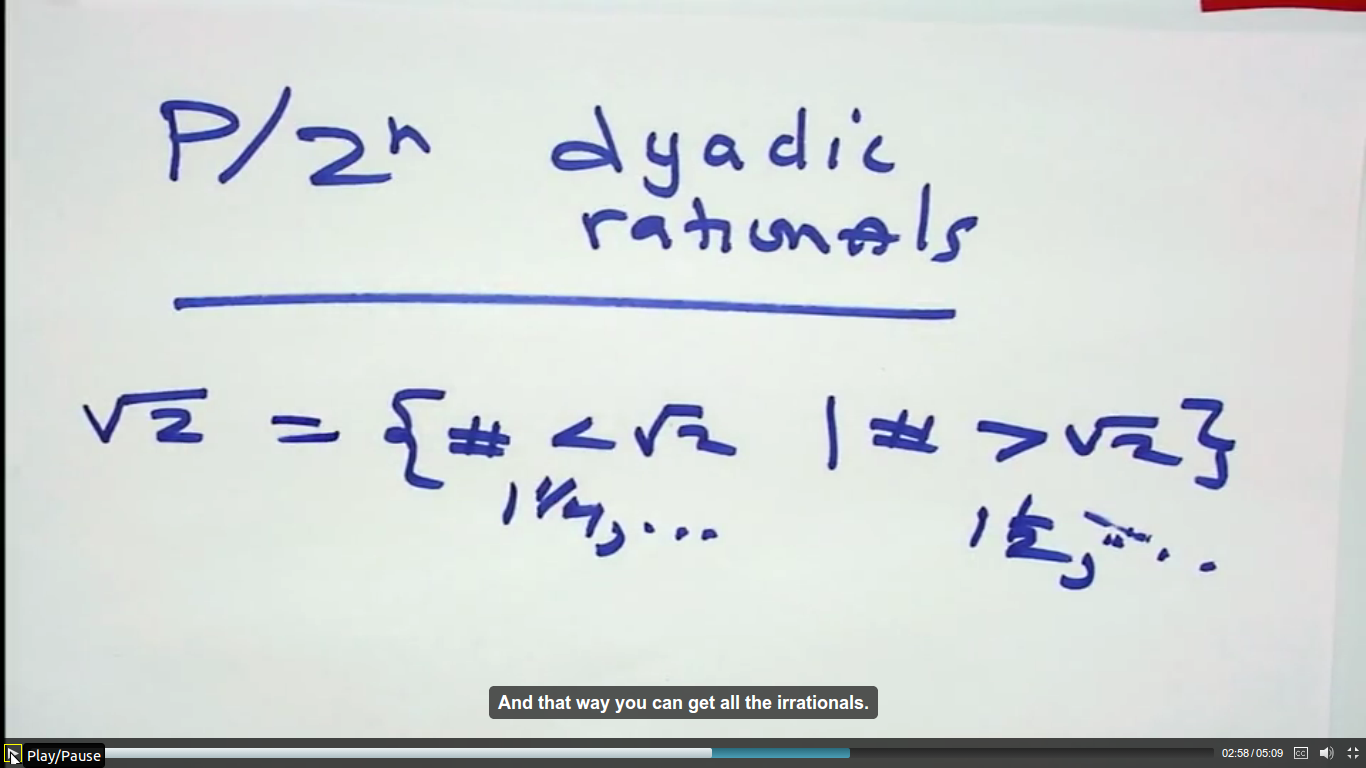 P/2ⁿ dyadic
rationals
√2 = {# < √2 | # > √2}
1 1/4, ... 1 1/2, ...
And that way you can get all the irrationals.
Play/Pause 02:58 / 05:09 CC